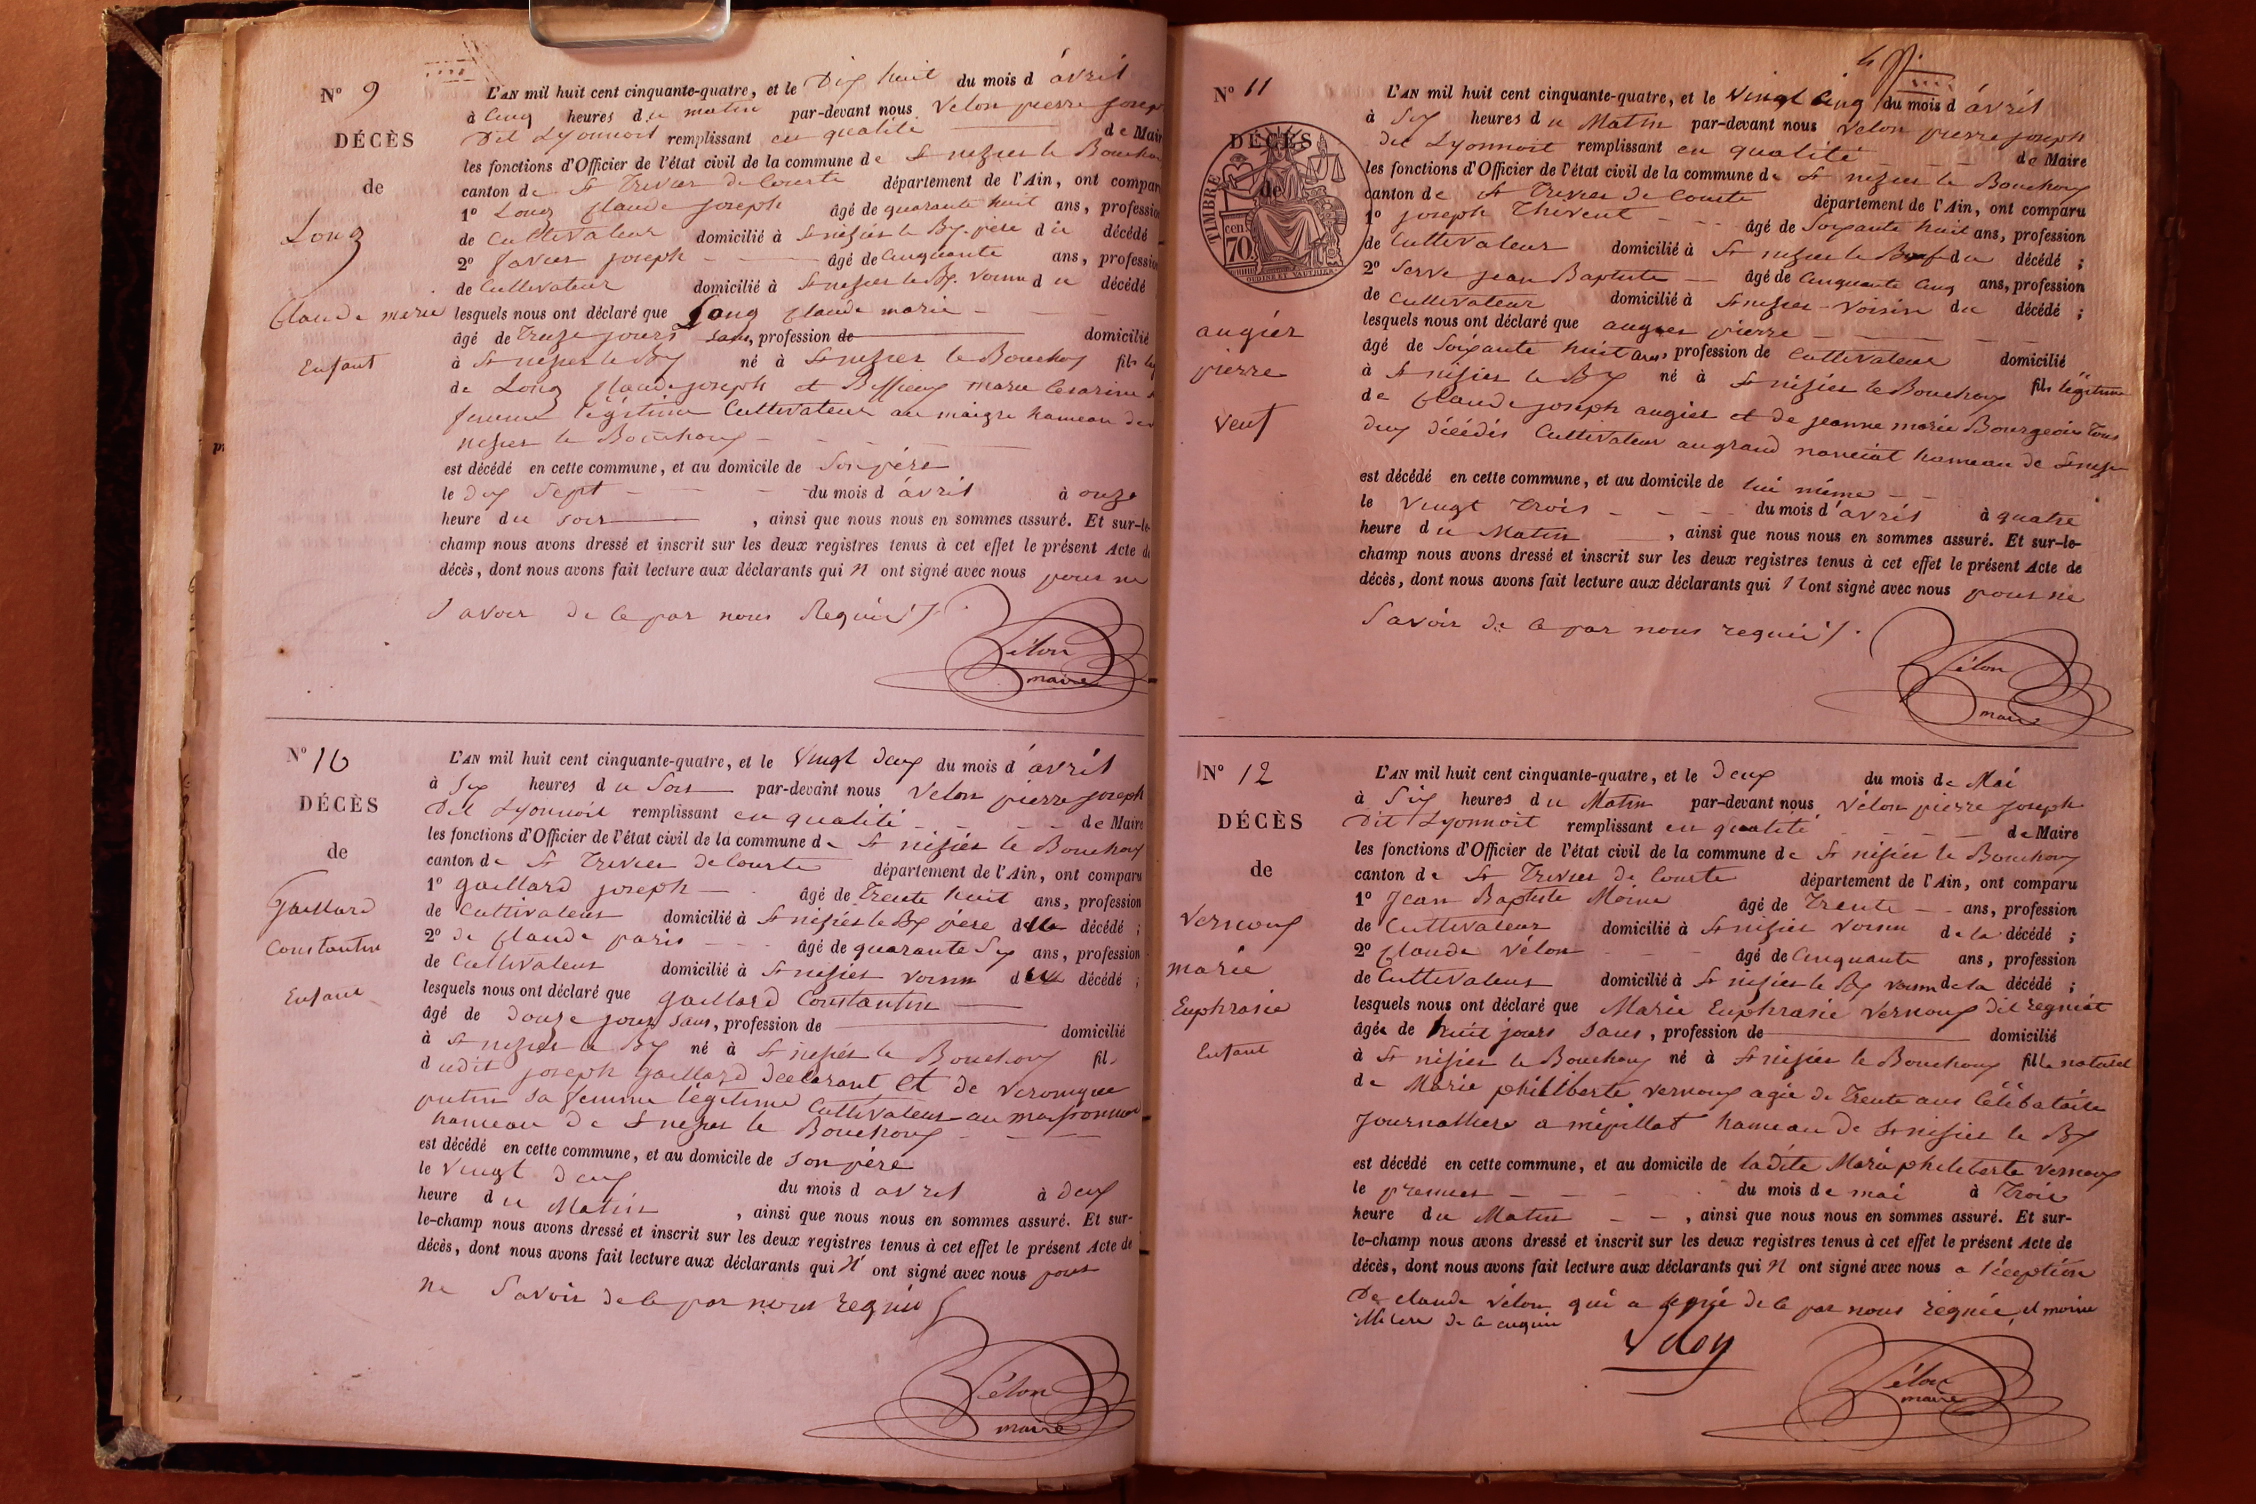 N° 9
DÉCÈS
de
Long
Claude marie
Enfant
L'AN mil huit cent cinquante-quatre, et le Dix huit du mois d avril
à Cinq heures du matin par-devant nous Velon pierre joseph
Dit Lyonnoit remplissant en qualité de Maire
les fonctions d'Officier de l'état civil de la commune de St nizier le Bouchoux
canton de St Trivier de Courte département de l'Ain, ont comparu
1° Long Claude joseph âgé de quarante huit ans, profession
de Cultivateur domicilié à St nizier le Bx père du décédé
2° joseph âgé de Cinquante ans, profession
de Cultivateur domicilié à St nizier le Bx. voisin du décédé
lesquels nous ont déclaré que Long Claude marie
âgé de Treize jours sans, profession de domicilié
à St nizier le Bx né à St nizier le Bouchoux fils
de Long Claude joseph et marie Cesarine
femme légitime Cultivateur au maigre hameau de
nizier le Bouchoux
est décédé en cette commune, et au domicile de Son père
le dix Sept du mois d avril à onze
heure du soir , ainsi que nous nous en sommes assuré. Et sur-le-
champ nous avons dressé et inscrit sur les deux registres tenus à cet effet le présent Acte de
décès, dont nous avons fait lecture aux déclarants qui n ont signé avec nous pour ne
Savoir de ce par nous Requis
Vélon
maire
N° 10
DÉCÈS
de
Gaillard
Constantin
Enfant
L'AN mil huit cent cinquante-quatre, et le Vingt deux du mois d avril
à Six heures du Soir par-devant nous Velon pierre joseph
Dit Lyonnoit remplissant en qualité de Maire
les fonctions d'Officier de l'état civil de la commune de St nizier le Bouchoux
canton de St Trivier de Courte département de l'Ain, ont comparu
1° gaillard joseph âgé de Trente huit ans, profession
de Cultivateur domicilié à St nizier le Bx père du décédé ;
2° de Claude paris âgé de quarante Six ans, profession
de Cultivateur domicilié à St nizier voisin du décédé ;
lesquels nous ont déclaré que gaillard Constantin
âgé de douze jours sans, profession de domicilié
à St nizier le Bx né à St nizier le Bouchoux fils
dudit joseph gaillard declarant et de Veronique
putin sa femme légitime Cultivateur au
hameau de St nizier le Bouchoux
est décédé en cette commune, et au domicile de son père
le Vingt deux du mois d avril à deux
heure du Matin , ainsi que nous nous en sommes assuré. Et sur-
le-champ nous avons dressé et inscrit sur les deux registres tenus à cet effet le présent Acte de
décès, dont nous avons fait lecture aux déclarants qui n' ont signé avec nous pour
ne Savoir de ce par nous requis
Vélon
maire
N° 11
DÉCÈS
de
TIMBRE
70 cen
OUDINE ET VAUTHIER
augier
pierre
veuf
L'AN mil huit cent cinquante-quatre, et le Vingt Cinq du mois d avril
à Six heures du Matin par-devant nous Velon pierre joseph
dit Lyonnoit remplissant en qualité de Maire
les fonctions d'Officier de l'état civil de la commune de St nizier le Bouchoux
canton de St Trivier de Courte département de l'Ain, ont comparu
1° joseph Thivent âgé de Soixante huit ans, profession
de Cultivateur domicilié à St nizier le du décédé ;
2° Serve jean Baptiste âgé de Cinquante Cinq ans, profession
de Cultivateur domicilié à St nizier Voisin du décédé ;
lesquels nous ont déclaré que augier pierre
âgé de Soixante huit ans, profession de Cultivateur domicilié
à St nizier le Bx né à St nizier le Bouchoux fils légitime
de Claude joseph augier et de jeanne marie Bourgeois Tous
deux décédés Cultivateur au grand hameau de St nizier
est décédé en cette commune, et au domicile de lui même
le Vingt Trois du mois d'avril à quatre
heure du Matin , ainsi que nous nous en sommes assuré. Et sur-le-
champ nous avons dressé et inscrit sur les deux registres tenus à cet effet le présent Acte de
décès, dont nous avons fait lecture aux déclarants qui n ont signé avec nous pour ne
Savoir de ce par nous requis
Vélon
maire
N° 12
DÉCÈS
de
Vernoux
marie
Euphrasie
Enfant
L'AN mil huit cent cinquante-quatre, et le Deux du mois de Mai
à Six heures du Matin par-devant nous Vélon pierre joseph
Dit Lyonnoit remplissant en qualité de Maire
les fonctions d'Officier de l'état civil de la commune de St nizier le Bouchoux
canton de St Trivier de Courte département de l'Ain, ont comparu
1° Jean Baptiste Moine âgé de Trente ans, profession
de Cultivateur domicilié à St nizier voisin de la décédé ;
2° Claude Vélon âgé de Cinquante ans, profession
de Cultivateur domicilié à St nizier le Bx voisin de la décédé ;
lesquels nous ont déclaré que Marie Euphrasie Vernoux dit regniat
âgée de huit jours sans, profession de domicilié
à St nizier le Bouchoux né à St nizier le Bouchoux fille naturel
de Marie philiberte Vernoux agée de Trente ans Célibataire
Journalliere a mépillat hameau de St nizier le Bx
est décédé en cette commune, et au domicile de ladite Marie philiberte Vernoux
le premier du mois de mai à Trois
heure du Matin , ainsi que nous nous en sommes assuré. Et sur-
le-champ nous avons dressé et inscrit sur les deux registres tenus à cet effet le présent Acte de
décès, dont nous avons fait lecture aux déclarants qui n ont signé avec nous a l'éception
De claude Vélon qui a signé de ce par nous requis, et moine
illitere de ce enquis
Vélon
maire